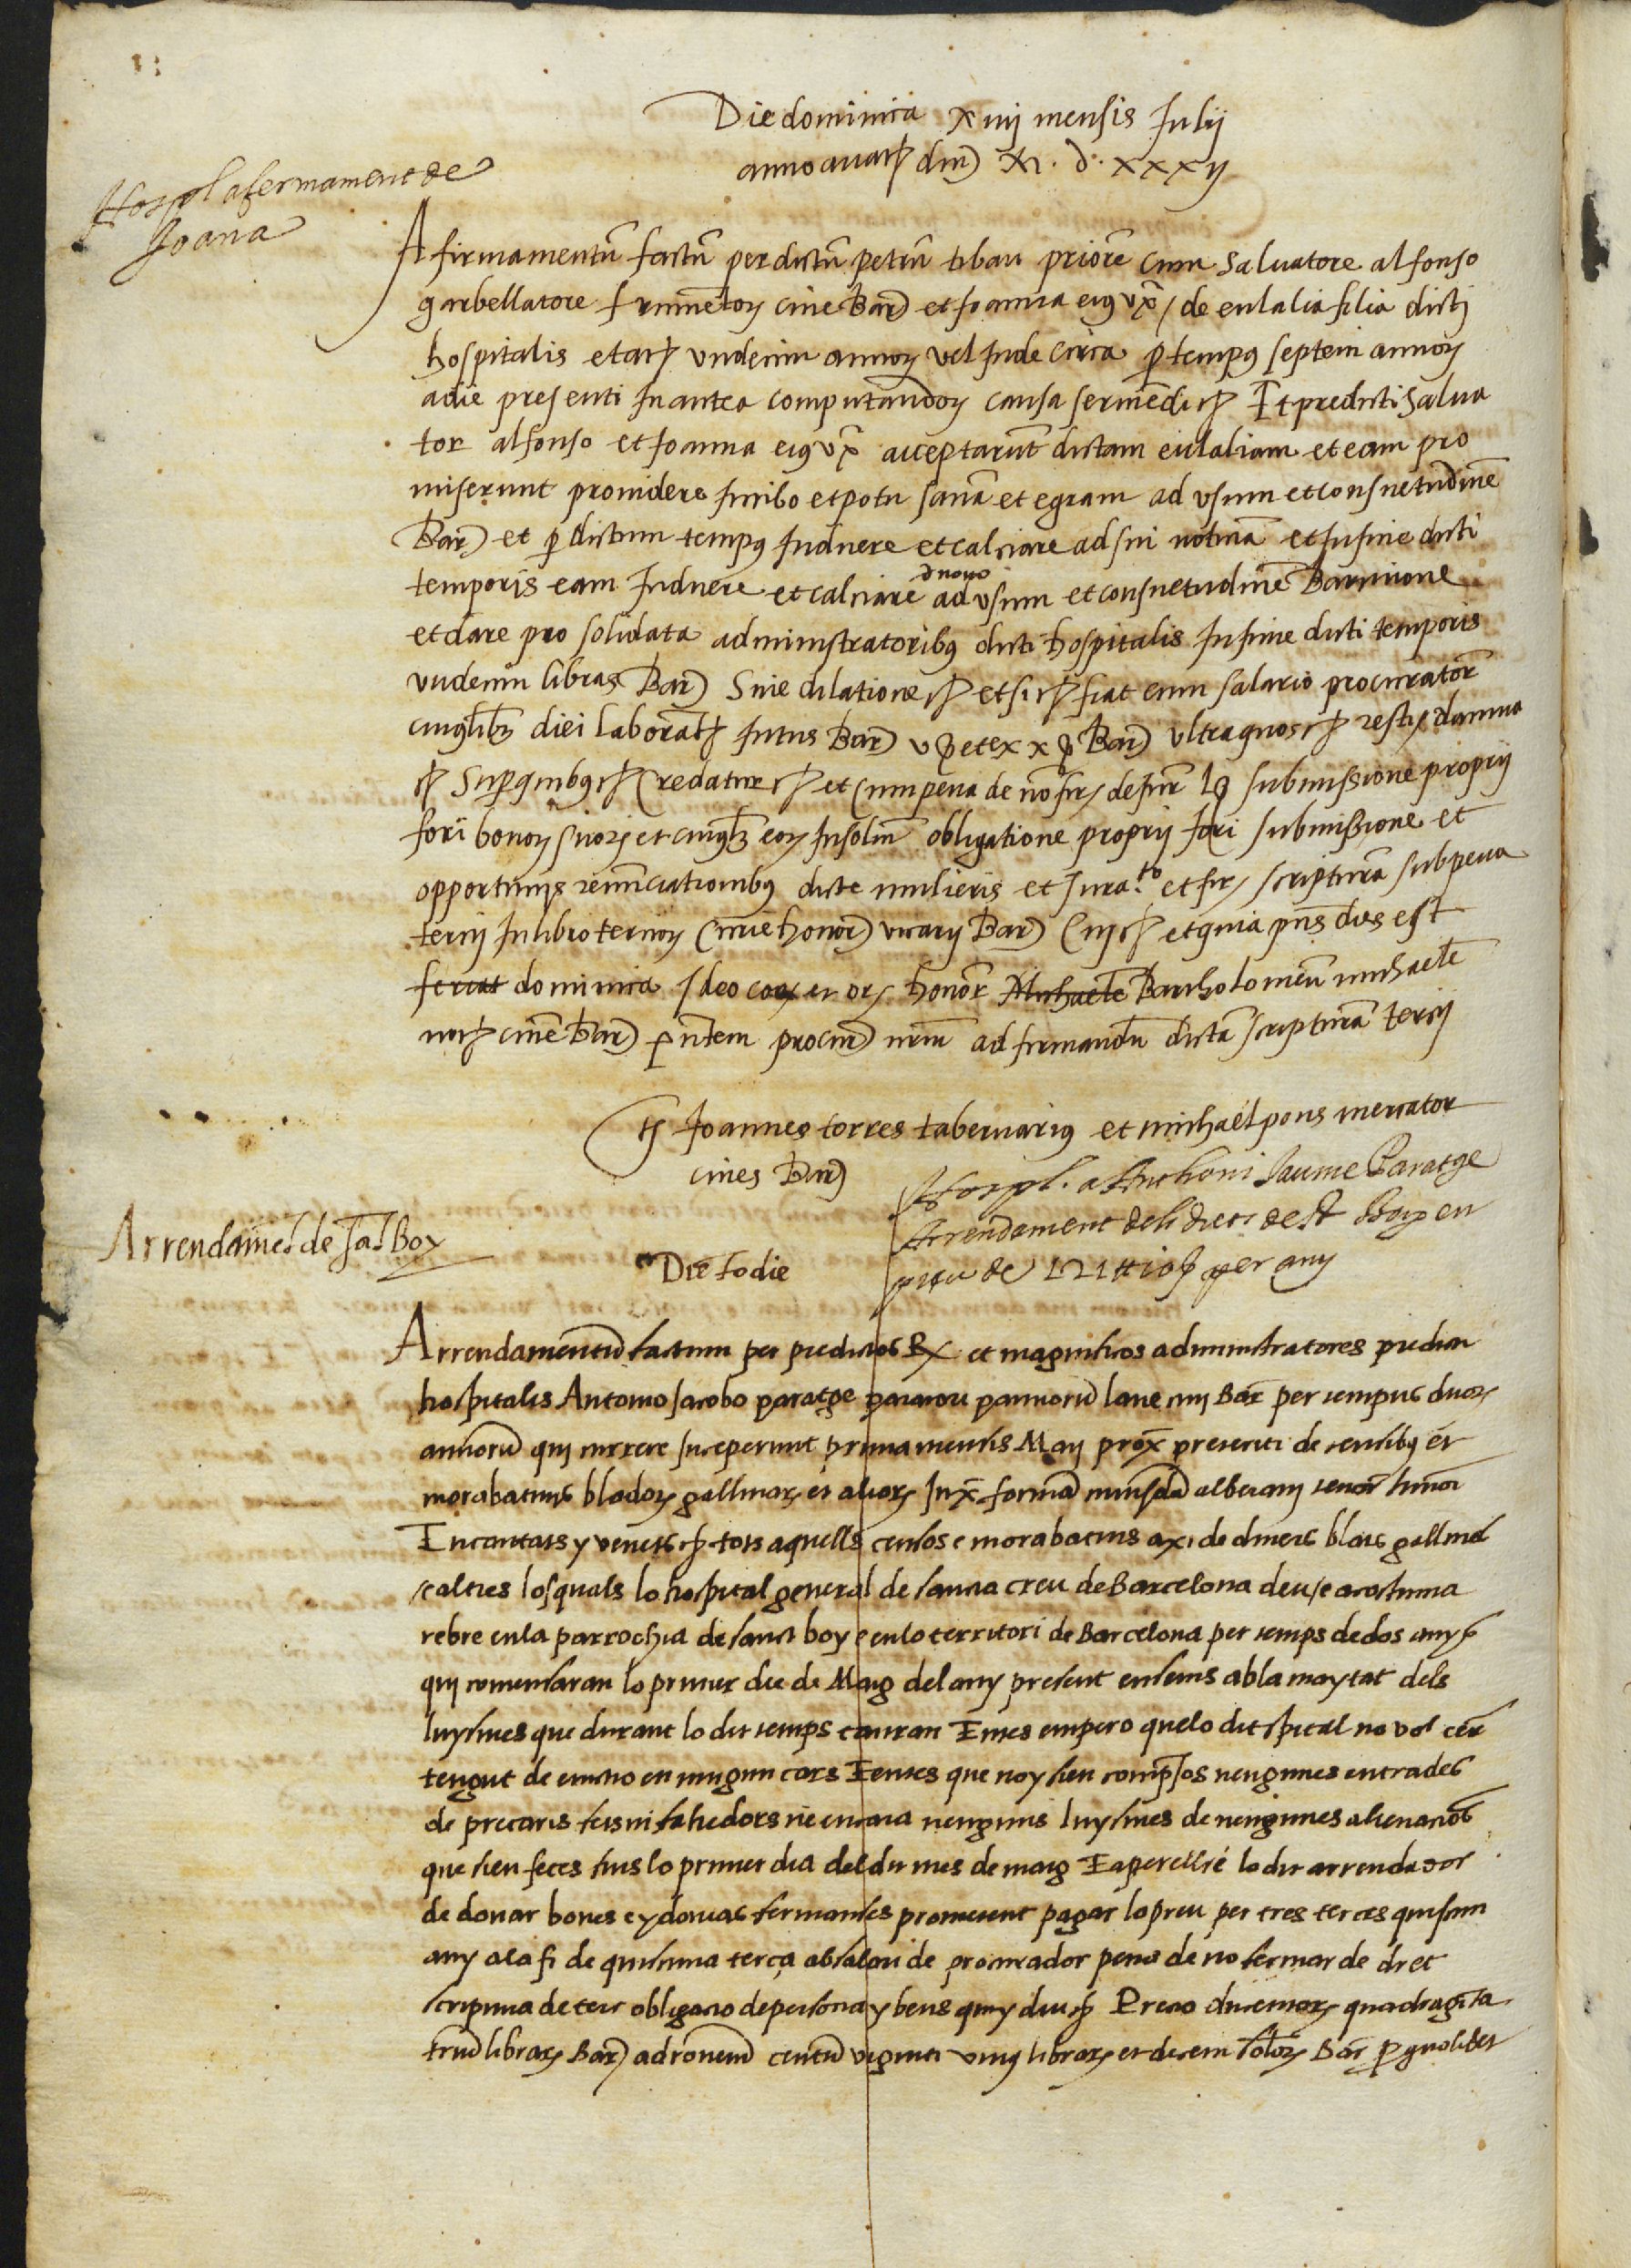 Die dominica xiiij mensis Julij
anno a nat⁊ dni) M. d. xxxij
Hospl afermament de
Joana
Afirmamentū factū per dictū petrū tibau priorē cum Saluatore alfonso
garbellatore frumētoꝝ ciue Bar) et Joanna eiꝰ vx̄, de eulalia filia dicti
hospitalis etat⁊ vndecim annoꝝ vel Inde circa ꝑ tempꝰ septem annoꝝ
a die presenti In antea computandoꝝ causa seruiēdi ⁊ Et predicti Salua
tor alfonso et Joanna eiꝰ vx̄ acceptarūt dictam eulaliam et eam pro
miserunt prouidere In cibo et potu sanā et egram ad vsum et consuetudinē
Bar) et ꝑ dictum tempꝰ Induere et calciare ad sui notitiā et In fine dicti
temporis eam Induere et calciare d nouo ad vsum et consuetudinē Barcinone
et dare pro solidata administratoribꝰ dicti hospitalis In fine dicti temporis
vndecim libras Bar) Sine dilatione ⁊ et si ⁊ fiat cum salario procuratoꝝ
cuiꝰlib3 diei laborat⁊ Intus Bar) v ꝑ et ex x ꝑ Bar) vltra quos ⁊ resty damna
⁊ Suꝑ quibꝰ ⁊ Credatur ⁊ et cum pena de nō fir, de iur submissione proprij
fori bonoꝝ suoꝝ et cuiꝰlib3 eoꝝ In solm̄ obligatione proprij fori submissione et
opportunis renūciationibꝰ dicte mulieris et Jura.to et fir, scripturā sub pena
tercij In libro tercioꝝ Curie honor) vicarij Bar) ⁊ et quia pn̄s dies est
feriat dominica Ideo honoꝝ Michaelē Bartholomeū michaelē
not⁊ ciuē Bar) pn̄tem procur) nrm̄ ad firmandū dictā scripturā tercij
ts Joannes torres tabernariꝰ et michael pons mercator
ciues Bar)
Hospl. a Anthoni Jaume Paratge
Arrendament dels drets de St Boy en
preu de 121 ll 10 ꝑ per any
Arrendamēt de sāt Boy
Die todie
Arrendamentū factum per predictos R, et magnificos administratores predicti
hospitalis Antonio Jacobo paratge paratori pannorū lane ciui Bar̄ per tempus duoꝝ
annorū qui currere Inceperunt prima mensis Maij prox̄ preteriti de censibꝰ et
morabatinis bladoꝝ gallinaꝝ et alioꝝ Jux̄ formā cuiusdā albarani tenor⁊
Encantats y venets ⁊ tots aquells censos e morabatins axi de diners blats gallines
e altres los quals lo hospital general de sancta creu de Barcelona deu, e acostuma
rebre en la parrochia de sanct boy e en lo territori de Barcelona per temps de dos anys
qui comensaran lo primer die de Maig del any present ensemps ab la maytat dels
luysmes que durant lo dit temps cauran Entes empero que lo dit spital no vol esser
tengut de euictio en ningun cars E entes que no y sien compsos nengunes entrades
de precaris fets ni fahedors ne encara nenguns luysmes de nengunes alienacions
que sien fetes fins lo primer dia del dit mes de maig E aperellie lo dit arrendador
de donar bones e ydoneas fermances prometent pagar lo preu per tres terces quiscun
any a la fi de quiscuna terça ab salari de procurador pena de no fermar de dret
scriptura de terc obligacio de persona y bens qui y diu ⁊ Precio ducentoꝝ quadraginta
triū libraꝝ Bar) ad ronem̄ centū viginti vniꝰ libraꝝ et decem solidoꝝ Bar̄ ꝑ quolibet